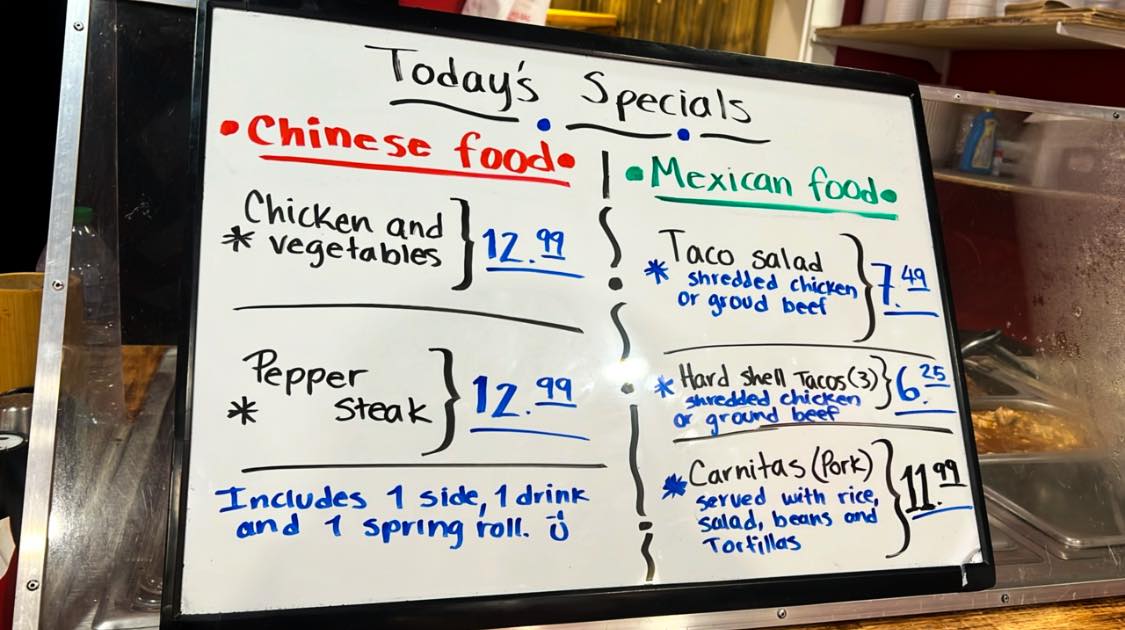 Today's Specials
•Chinese food•
Chicken and
* vegetables } 12.99
Pepper
* Steak } 12.99
Includes 1 side, 1 drink
and 1 spring roll. :)
•Mexican food•
Taco salad
* shredded chicken } 7.49
or groud beef
* Hard shell Tacos (3) } 6.25
shredded chicken
or ground beef
* Carnitas (Pork) } 11.99
served with rice,
salad, beans and
Tortillas